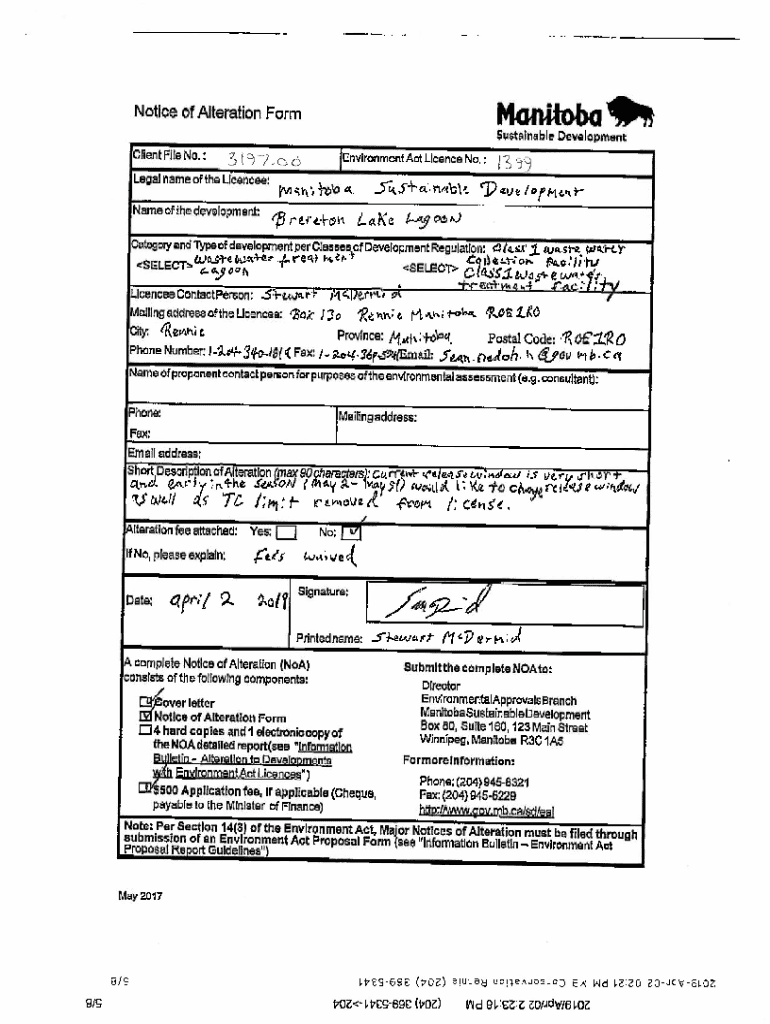 Notice of Alteration Form
Manitoba
Sustainable Development
Client File No.: 3197.00 Environment Act Licence No.: 1399
Legal name of the Licencee: Manitoba Sustainable Development
Name of the development: Brereton Lake Lagoon
Category and Type of development per Classes of Development Regulation: Class 1 waste water
<SELECT> wastewater treatment <SELECT> Collection facility
Lagoon Class 1 wastewater
treatment facility
Licencee Contact Person: Stewart McDermid
Mailing address of the Licencee: Box 130 Rennie Manitoba R0E1R0
City: Rennie Province: Manitoba Postal Code: R0E1R0
Phone Number: Fax: Email:
Name of proponent contact person for purposes of the environmental assessment (e.g. consultant):
Phone: Mailing address:
Fax:
Email address:
Short Description of Alteration (max 90 characters): Current release window is very short
and early in the season (may 2- may 31) would like to change release window
as well as TC limit removed from license.
Alteration fee attached: Yes: No:
If No, please explain: Fees waived
Date: april 2 2019 Signature:
Printed name: Stewart McDermid
A complete Notice of Alteration (NoA)
consists of the following components:
Cover letter
Notice of Alteration Form
4 hard copies and 1 electronic copy of
the NOA detailed report (see "Information
Bulletin – Alteration to Developments
with Environment Act Licences")
$500 Application fee, if applicable (Cheque,
payable to the Minister of Finance)
Submit the complete NOA to:
Director
Environmental Approvals Branch
Manitoba Sustainable Development
Box 80, Suite 160, 123 Main Street
Winnipeg, Manitoba R3C 1A5
For more information:
Phone: (204) 945-8321
Fax: (204) 945-5229
http://www.gov.mb.ca/sd/eal
Note: Per Section 14(3) of the Environment Act, Major Notices of Alteration must be filed through
submission of an Environment Act Proposal Form (see "Information Bulletin – Environment Act
Proposal Report Guidelines")
May 2017
2019-Apr-02 02:21 PM Conservation Rennie (204) 369-5341 5/8
2019/Apr/02 2:23:18 PM (204) 369-5341->204 5/8